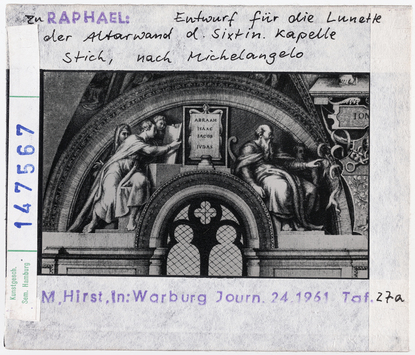 zu RAPHAEL: Entwurf für die Lunette
der Altarwand d. Sixtin. Kapelle
Stich, nach Michelangelo
147567
Kunstgesch.
Sem. Hamburg
ABRAAM
ISAAC
IACOB
IVDAS
ION
M. Hirst, In: Warburg Journ. 24.1961 Taf. 27a